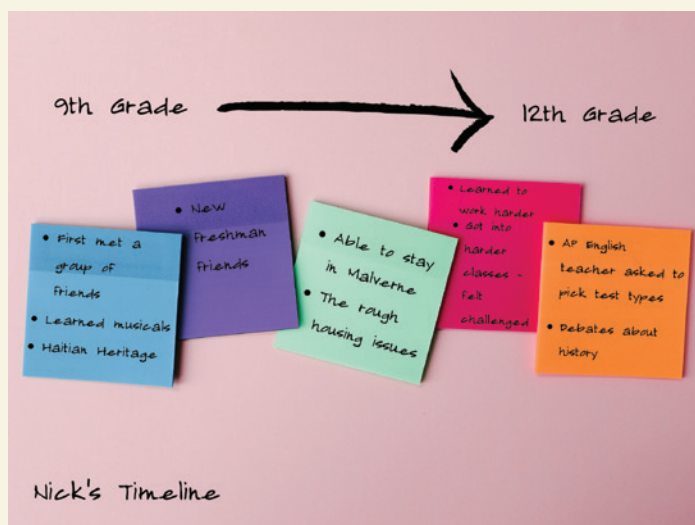 9th Grade
12th Grade
• First met a
group of
friends
• Learned musicals
• Haitian Heritage
• New
freshman
friends
• Able to stay
in Malverne
• The rough
housing issues
• Learned to
work harder
• Got into
harder
classes -
felt
challenged
• AP English
teacher asked to
pick test types
• Debates about
history
Nick's Timeline